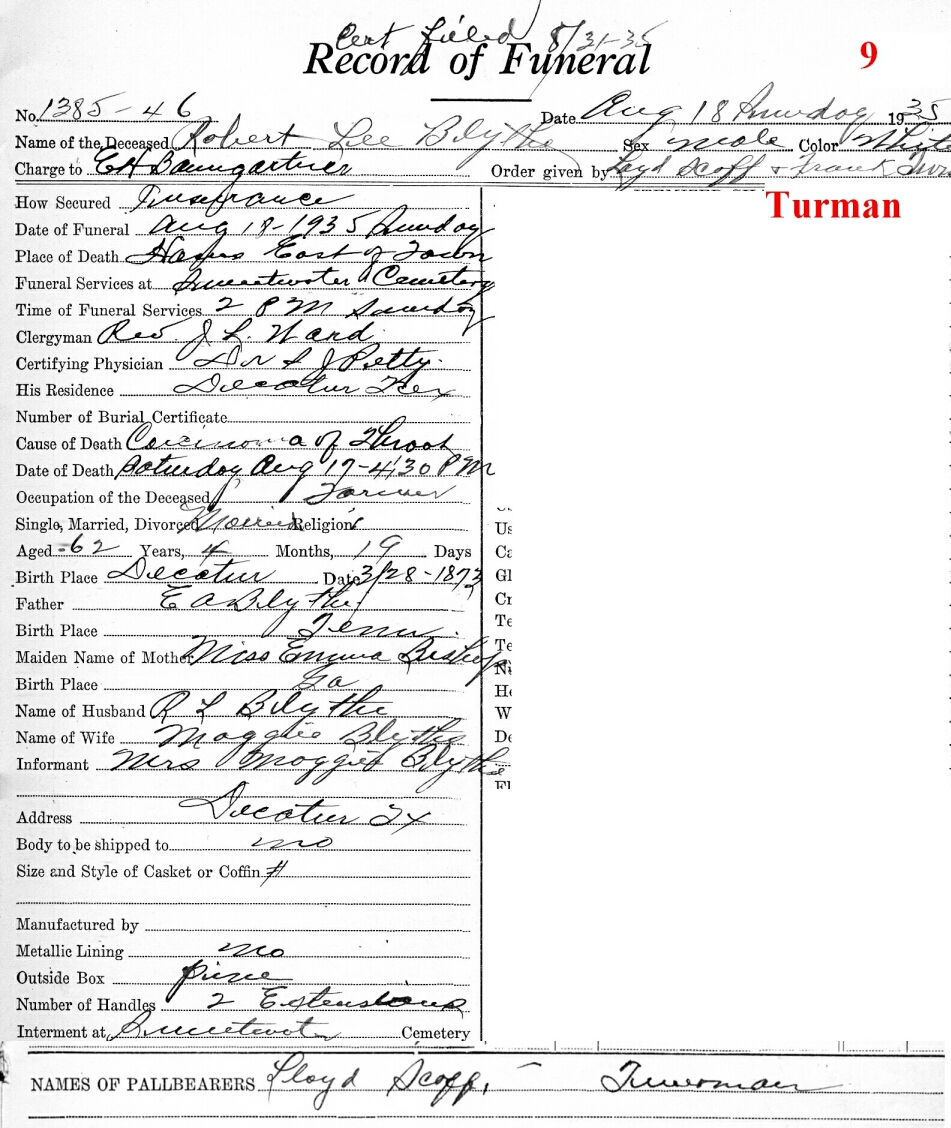 Cert filed 8/31-35
Record of Funeral
9
No. 1385-46 Date Aug 18 Sunday 1935
Name of the Deceased Robert Lee Blythe Sex male Color White
Charge to EH Baumgartner Order given by Loyd Scoff & Frank
Turman
How Secured Insurance
Date of Funeral Aug 18-1935 Sunday
Place of Death East of Town
Funeral Services at Sweetwater Cemetery
Time of Funeral Services 2 PM Sunday
Clergyman Rev J L Ward
Certifying Physician Dr L J Petty
His Residence Decatur Tex
Number of Burial Certificate
Cause of Death Carcinoma of Throat
Date of Death Saturday Aug 17-4:30 PM
Occupation of the Deceased Farmer
Us
Single, Married, Divorced Married Religion
Ca
Aged 62 Years, 4 Months, 19 Days
Gl
Birth Place Decatur Date 3/28-1873
Cr
Father E A Blythe
Te
Birth Place Tenn.
Te
Maiden Name of Mother Miss Emma Bishop
Birth Place Ga
He
Name of Husband R L Blythe
W
Name of Wife Maggie Blythe
De
Informant Mrs Maggie Blythe
Address Decatur Tx
Body to be shipped to no
Size and Style of Casket or Coffin #
Manufactured by
Metallic Lining no
Outside Box pine
Number of Handles 2 Extensions
Interment at Sweetwater Cemetery
NAMES OF PALLBEARERS Lloyd Scoff, - Tuwrman